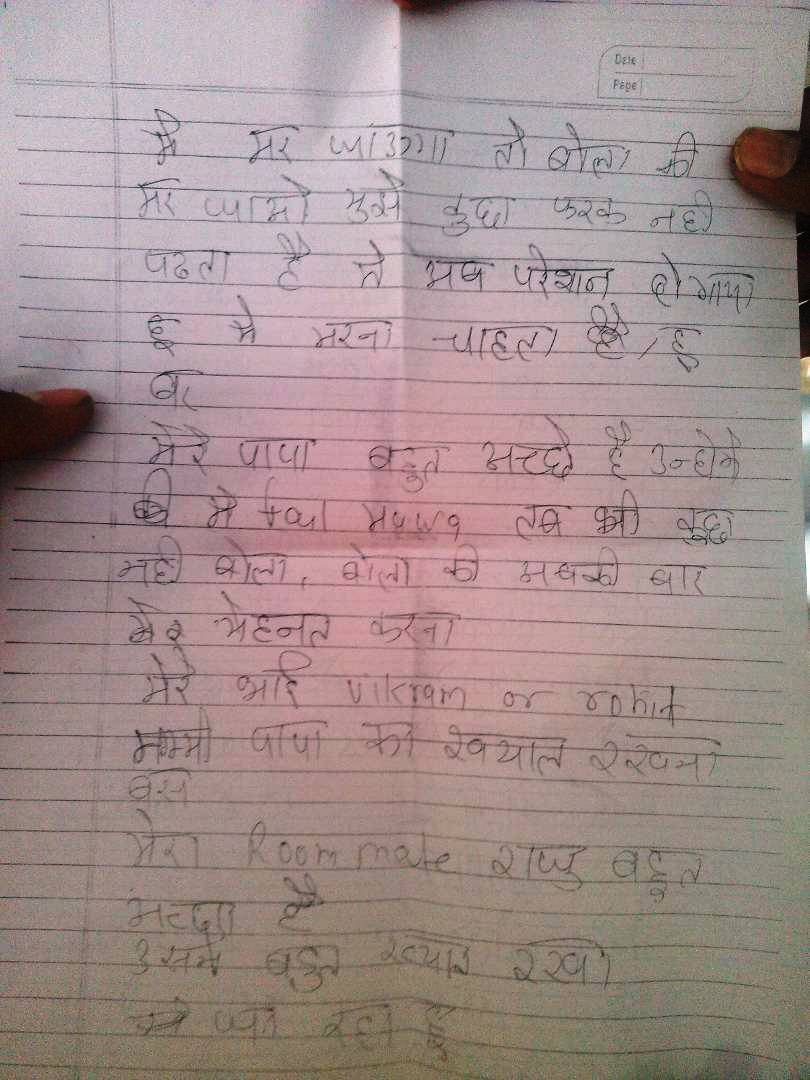 Date
Page
मै मर जाउगा तो बोला की
मर जाओ मुझे कुछ फरक नही
पढता है मे अब परेशान हो गाया
हू मे मरना चाहता है / हू
मेरे पापा बहुत अच्छे है उन्होने
मे fail तब भी कुछ
नही बोला, बोला की अबकी बार
मेहनत करना
मेरे भाई vikram or rohit
मम्मी पापा का ख्याल रखना
बस
मेरा Room mate राजु बहुत
अच्छा है
उसने बहुत ख्याल रखा
मे जा रहा हू